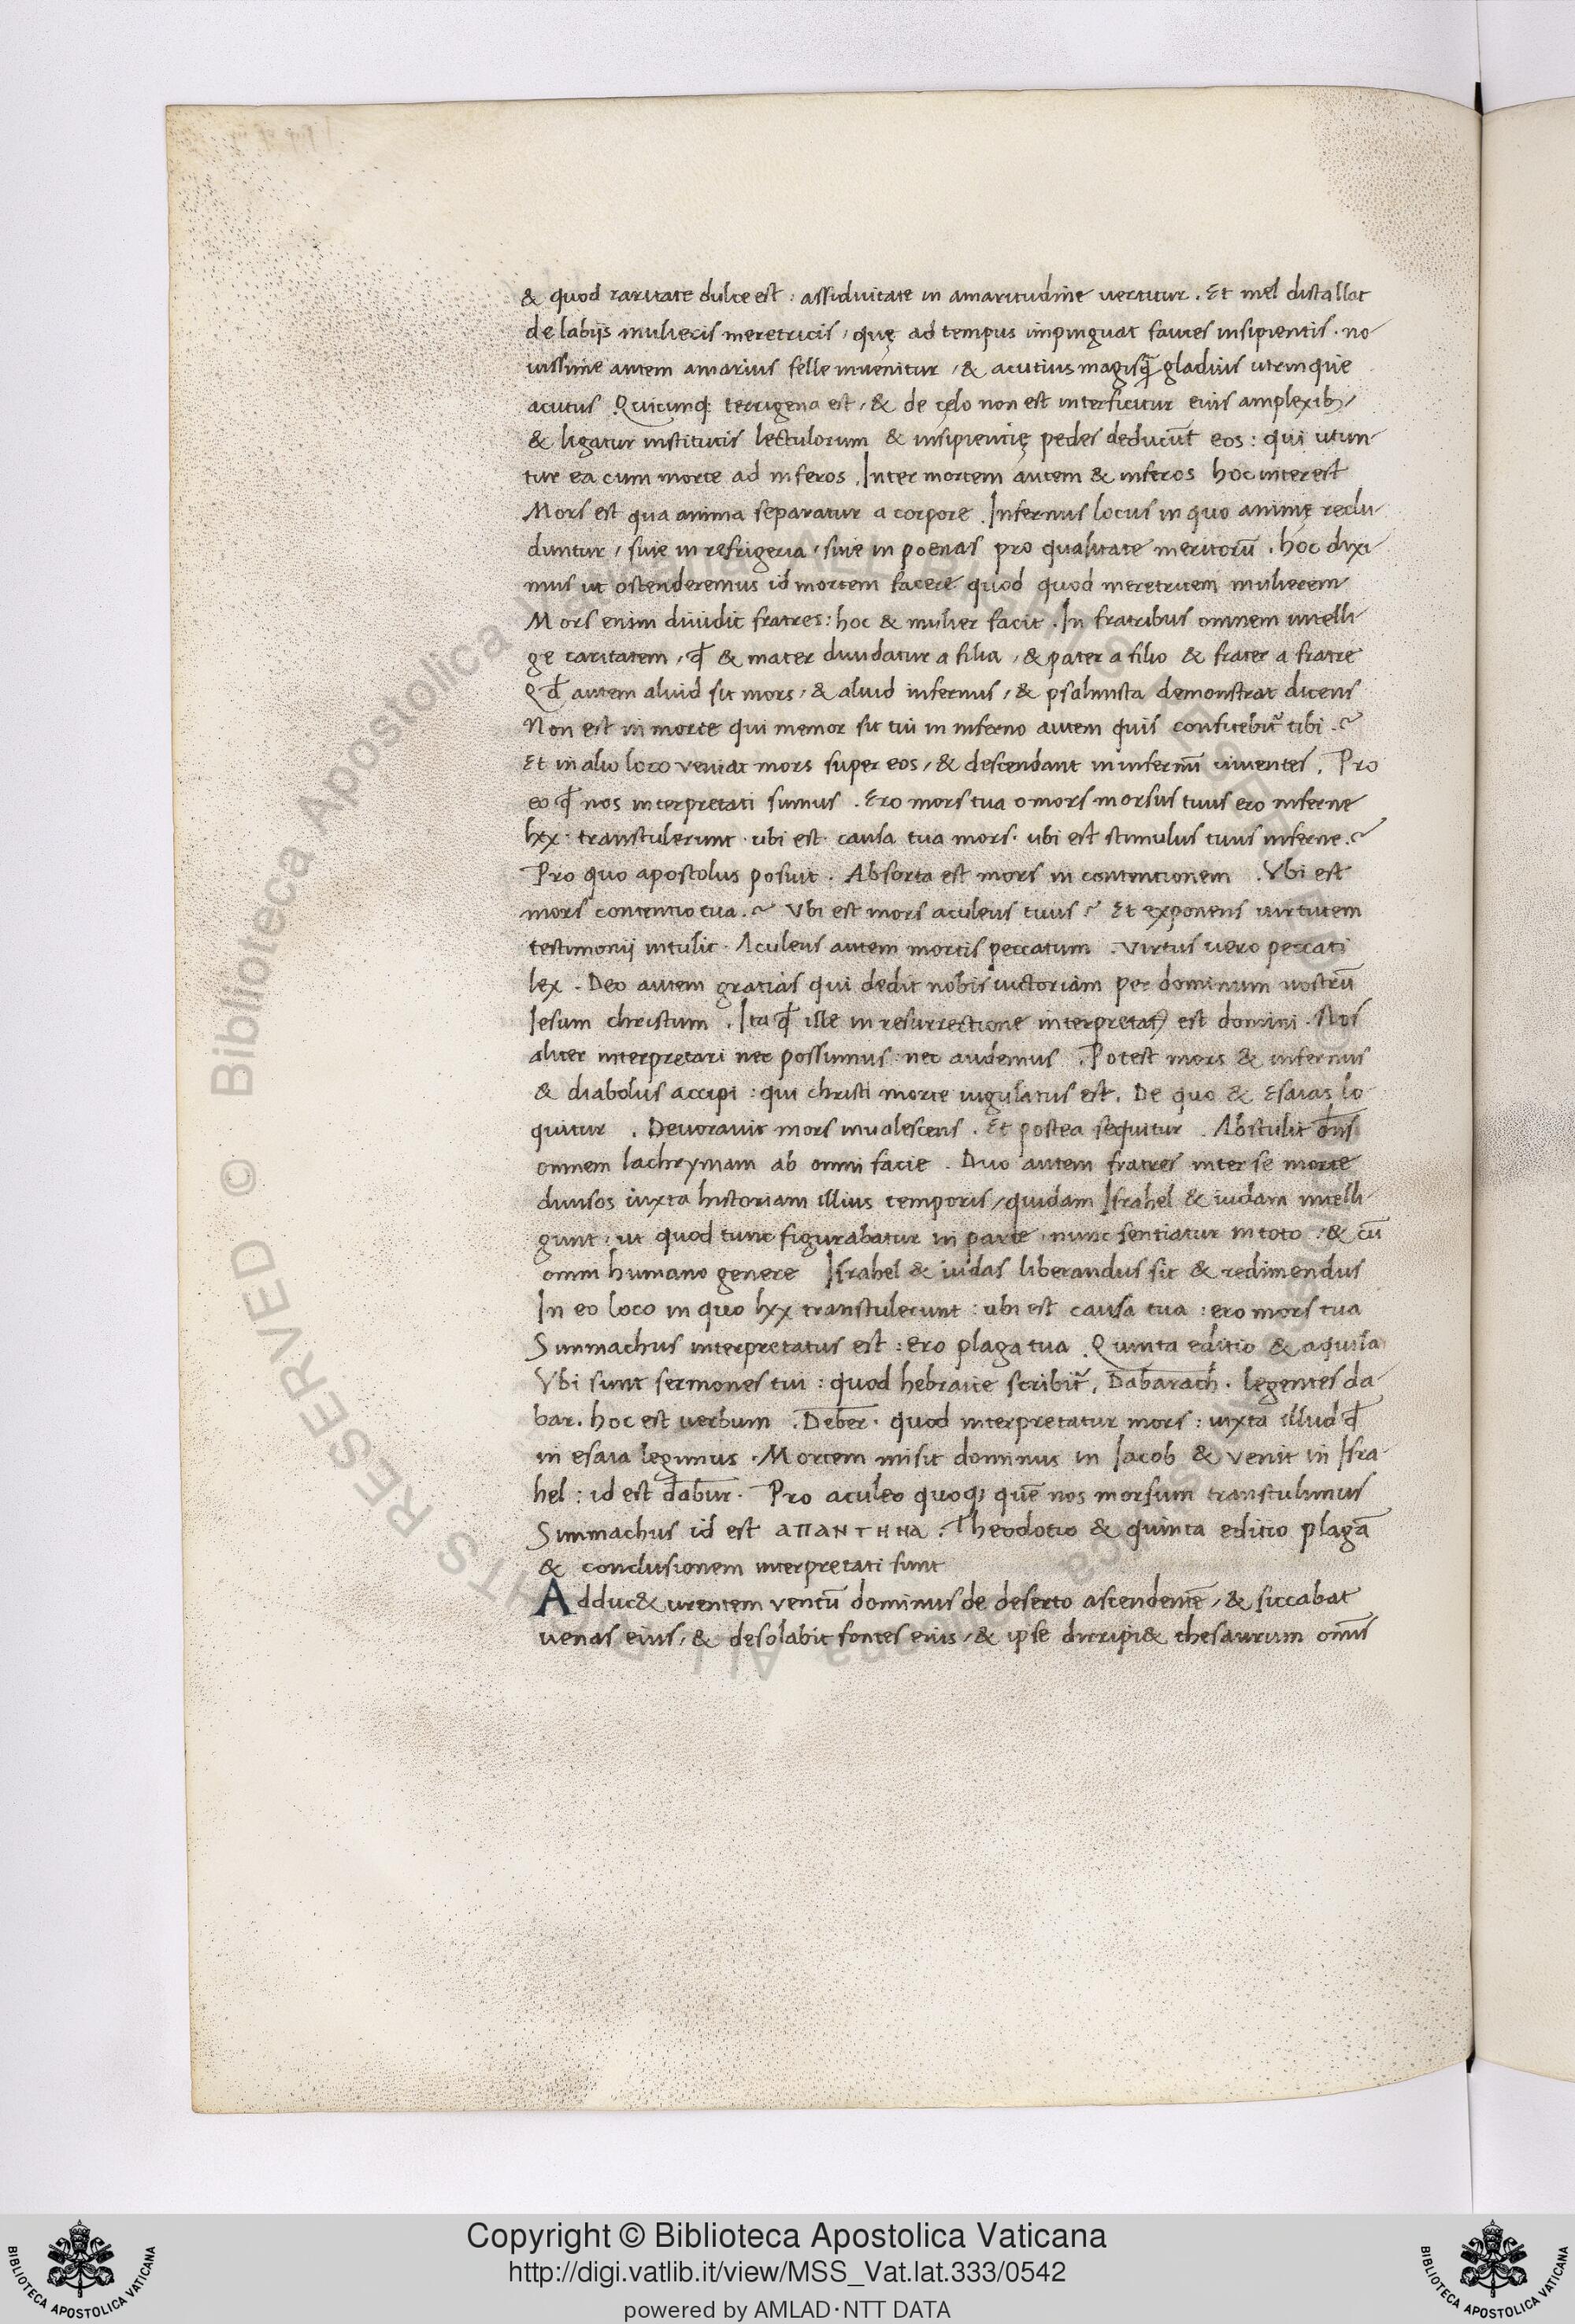 & quod raritate dulce est : assiduitate in amaritudine uertitur . Et mel distallat
de labijs mulieris meretricis / quę ad tempus impinguat fauces insipientis . no
uissime autem amarius felle inuenitur / & acutius magisq̃ gladius utrinque
acutus . Quicunq; terrigena est / & de cęlo non est interficitur eius amplexib;
& ligatur institutis lectulorum & insipientię pedes deducūt eos : qui utun
tur ea cum morte ad inferos . Inter mortem autem & inferos hoc interest
Mors est qua anima separatur a corpore . Infernus locus in quo animę reclu
duntur / siue in refrigeria / siue in poenas pro qualitate meritorū . hoc dixi
mus ut ostenderemus id mortem facere quod quod meretricem mulierem
Mors enim diuidit fratres : hoc & mulier facit . In fratribus omnem intelli
ge caritatem / qđ & mater diuidatur a filia / & pater a filio & frater a fratre
Qđ autem aliud sit mors / & aliud infernus / & psalmista demonstrat dicens
Non est in morte qui memor sit tui in inferno autem quis confitebit̃ tibi . ?
Et in alio loco veniat mors super eos / & descendant in infernū uiuentes . Pro
eo qđ nos interpretati sumus . Ero mors tua o mors morsus tuus ero inferne
lxx . transtulerunt . ubi est causa tua mors . ubi est stimulus tuus inferne . ?
Pro quo apostolus posuit . Absorta est mors in contentionem . Vbi est
mors contentio tua . ? Vbi est mors aculeus tuus ? Et exponens uirtutem
testimonij intulit . Aculeus autem mortis peccatum . Virtus uero peccati
lex . Deo autem gratias qui dedit nobis uictoriam per dominum nostrū
Iesum christum . Ita qđ ille in resurrectione interpretat⁊ est domini . Nos
aliter interpretari nec possumus nec audemus . Potest mors & infernus
& diabolus accipi : qui christi morte iugulatus est . De quo & Esaias lo
quitur . Deuorauit mors inualescens . Et postea sequitur . Abstulit dn̄s
omnem lachrymam ab omni facie . Duo autem fratres inter se morte
diuisos iuxta historiam illius temporis / quidam Israhel & iudam intelli
gunt : ut quod tunc figurabatur in parte nunc sentiatur in toto : & cū
omni humano genere Israhel & iudas liberandus sit & redimendus
In eo loco in quo lxx transtulerunt : ubi est causa tua : ero mors tua
Simmachus interpretatus est : ero plaga tua . Quinta editio & aquila
Vbi sunt sermones tui : quod hebraice scribit̃ . Dabarach . legentes da
bar . hoc est uerbum . Deber . quod interpretatur mors : iuxta illud qđ
in esaia legimus . Mortem misit dominus in Iacob & venit in Isra
hel : id est dabur . Pro aculeo quoq; quē nos morsum transtulimus
Simmachus id est ΑΠΑΝΤΗΗΑ . Theodotio & quinta editio plagā
& conclusionem interpretati sunt
Adduc& urentem ventū dominus de deserto ascendentē / & siccabat
uenas eius / & desolabit fontes eius / & ipse diripi& thesaurum om̄is
Copyright © Biblioteca Apostolica Vaticana
http://digi.vatlib.it/view/MSS_Vat.lat.333/0542
powered by AMLAD·NTT DATA
BIBLIOTECA APOSTOLICA VATICANA
BIBLIOTECA APOSTOLICA VATICANA